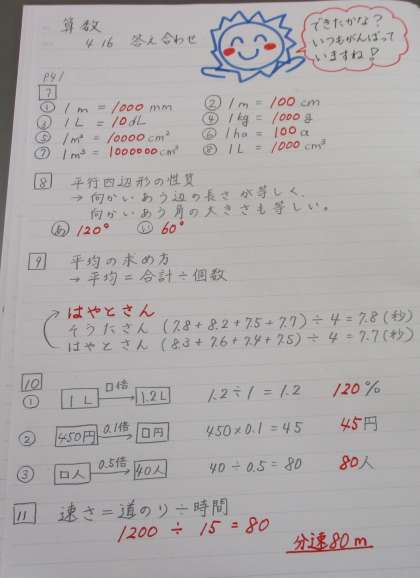 算数
4.16 答え合わせ
できたかな?
いつもがんばって
いますね!
P41
7
① 1m = 1000 mm
② 1m = 100 cm
③ 1L = 10 dL
④ 1kg = 1000 g
⑤ 1m² = 10000 cm²
⑥ 1ha = 100 a
⑦ 1m³ = 1000000 cm³
⑧ 1L = 1000 cm³
8 平行四辺形の性質
→ 向かいあう辺の長さが等しく、
向かいあう角の大きさも等しい。
あ 120° い 60°
9 平均の求め方
→ 平均 = 合計 ÷ 個数
はやとさん
そうたさん (7.8 + 8.2 + 7.5 + 7.7) ÷ 4 = 7.8 (秒)
はやとさん (8.3 + 7.6 + 7.4 + 7.5) ÷ 4 = 7.7 (秒)
10
① 1L □倍 1.2L 1.2 ÷ 1 = 1.2 120%
② 450円 0.1倍 □円 450 × 0.1 = 45 45円
③ □人 0.5倍 40人 40 ÷ 0.5 = 80 80人
11 速さ = 道のり ÷ 時間
1200 ÷ 15 = 80
分速80m